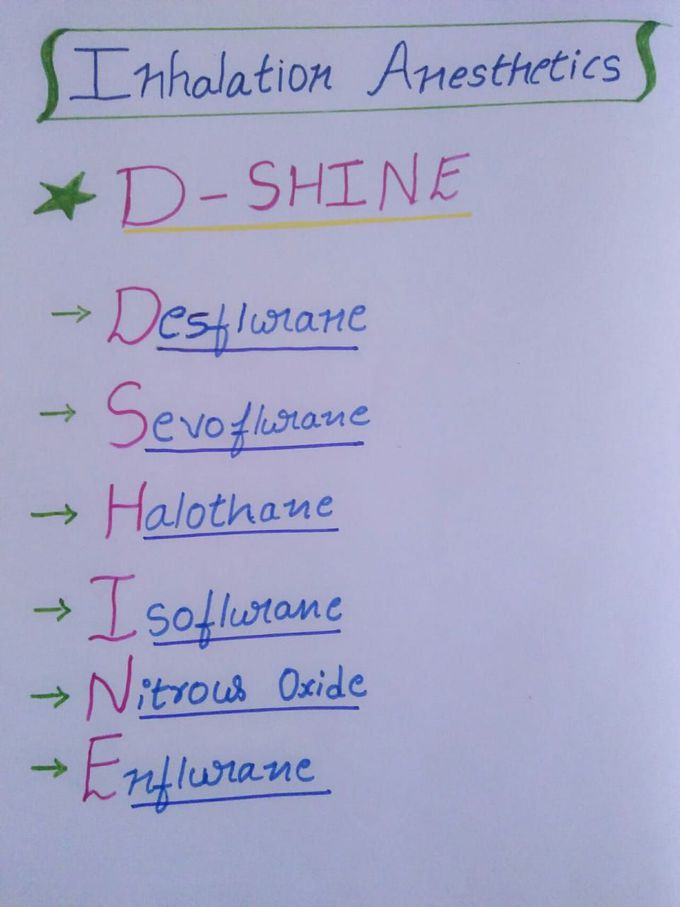 Inhalation Anesthetics
D-SHINE
Desflurane
Sevoflurane
Halothane
Isoflurane
Nitrous Oxide
Enflurane